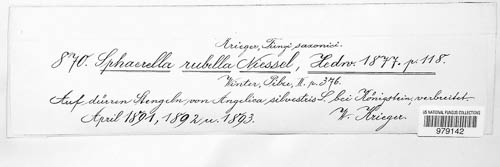 Krieger, Fungi saxonici.
870. Sphaerella rubella Niessl, Hedw. 1877. p. 118.
Winter, Pilze, II. p. 376.
Auf dürren Stengeln von Angelica silvestris L. bei Königstein, verbreitet.
April 1891, 1892 u. 1893. W. Krieger.
US NATIONAL FUNGUS COLLECTIONS
979142